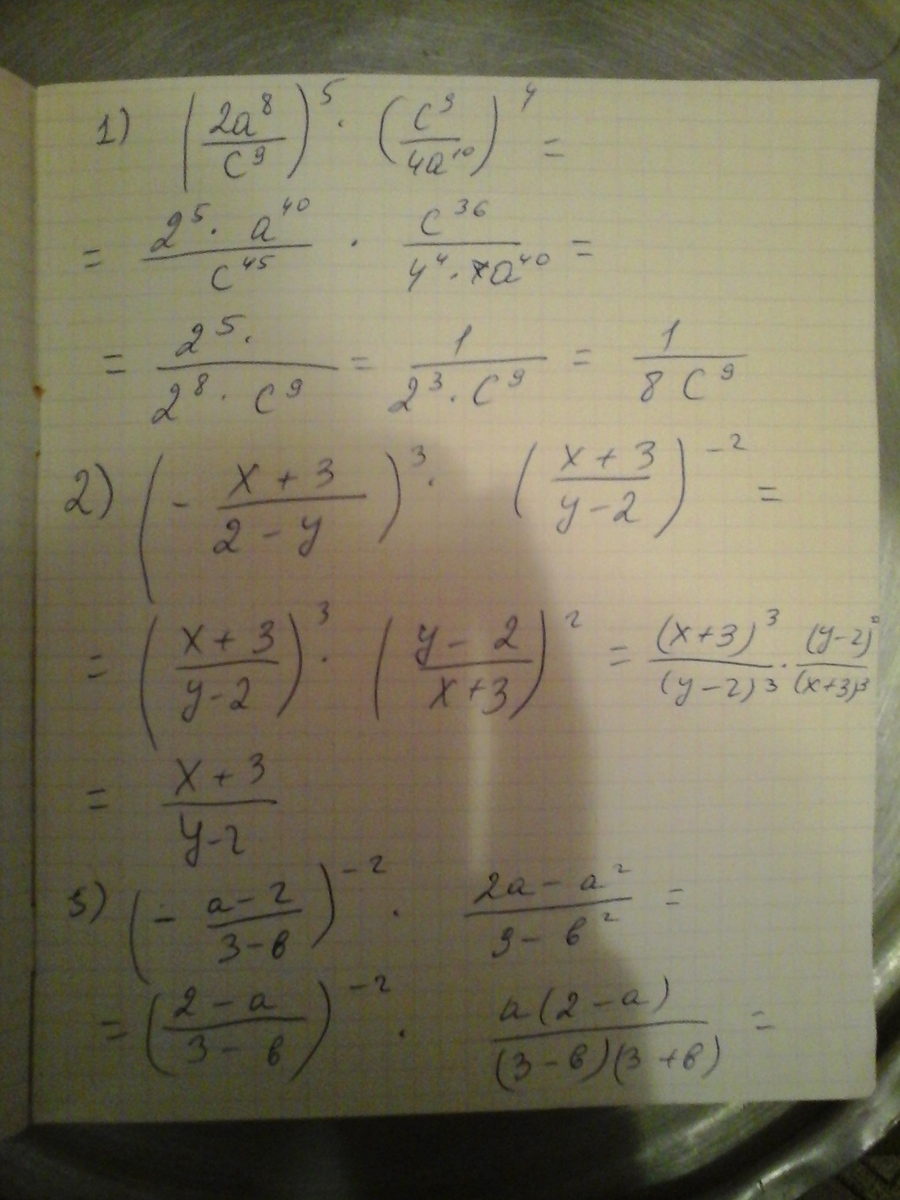 1) (2a⁸/c⁹)⁵ · (c⁹/4a¹⁰)⁴ =
= 2⁵ · a⁴⁰/c⁴⁵ · c³⁶/4⁴ · a⁴⁰ =
= 2⁵ ·/2⁸ · c⁹ = 1/2³ · c⁹ = 1/8 c⁹
2) (- x + 3/2 - y)³ · (x + 3/y - 2)⁻² =
= (x + 3/y - 2)³ · (y - 2/x + 3)² = (x+3)³/(y-2)³ · (y-2)²/(x+3)³
= x + 3/y - 2
3) (- a - 2/3 - в)⁻² · 2a - a²/9 - в² =
= (2 - a/3 - в)⁻² · a(2 - a)/(3 - в)(3 + в) =